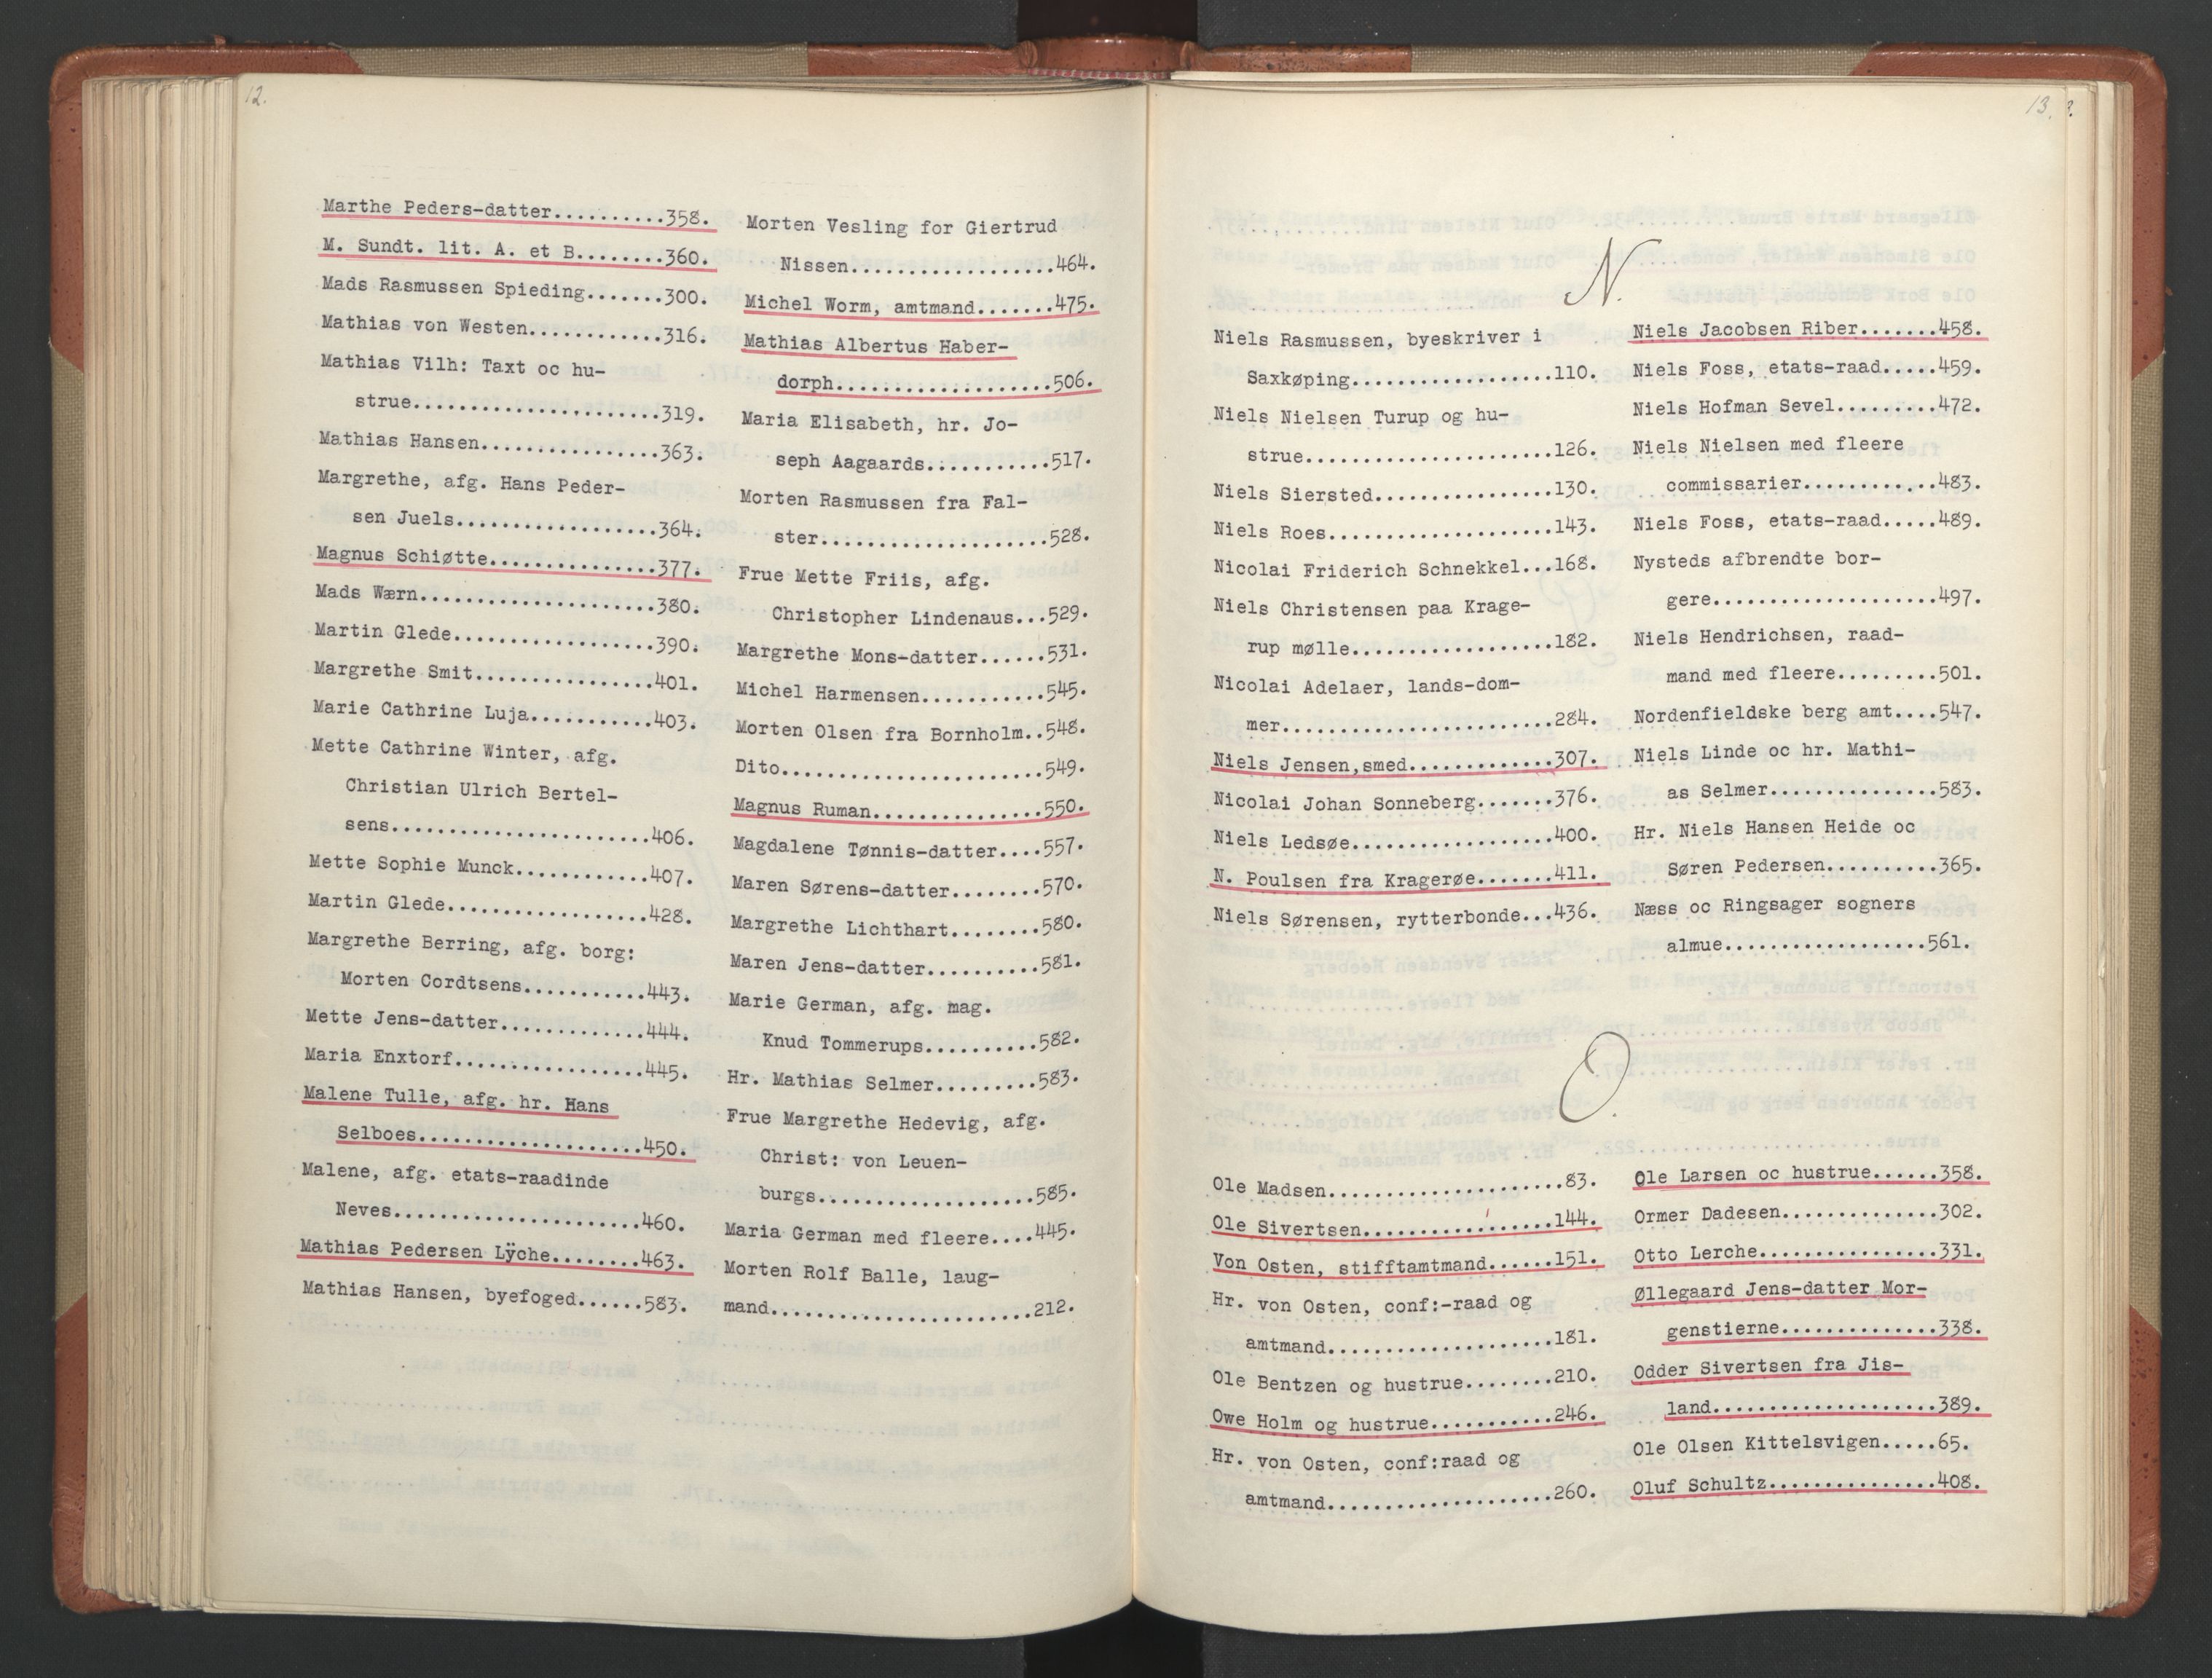 12.
Marthe Peders-datter..........358.
M. Sundt. lit. A. et B........360.
Mads Rasmussen Spieding.......300.
Mathias von Westen............316.
Mathias Vilh: Taxt oc hu-
strue......................319.
Mathias Hansen................363.
Margrethe, afg. Hans Peder-
sen Juels..................364.
Magnus Schiøtte...............377.
Mads Wærn.....................380.
Martin Glede..................390.
Margrethe Smit................401.
Marie Cathrine Luja...........403.
Mette Cathrine Winter, afg.
Christian Ulrich Bertel-
sens.......................406.
Mette Sophie Munck............407.
Martin Glede..................428.
Margrethe Berring, afg. borg:
Morten Cordtsens...........443.
Mette Jens-datter.............444.
Maria Enxtorf.................445.
Malene Tulle, afg. hr. Hans
Selboes....................450.
Malene, afg. etats-raadinde
Neves......................460.
Mathias Pedersen Lÿche........463.
Mathias Hansen, byefoged......583.
Morten Vesling for Giertrud
Nissen..................464.
Michel Worm, amtmand.......475.
Mathias Albertus Haber-
dorph...................506.
Maria Elisabeth, hr. Jo-
seph Aagaards...........517.
Morten Rasmussen fra Fal-
ster....................528.
Frue Mette Friis, afg.
Christopher Lindenaus...529.
Margrethe Mons-datter......531.
Michel Harmensen...........545.
Morten Olsen fra Bornholm..548.
Dito.......................549.
Magnus Ruman...............550.
Magdalene Tønnis-datter....557.
Maren Sørens-datter........570.
Margrethe Lichthart........580.
Maren Jens-datter..........581.
Marie German, afg. mag.
Knud Tommerups..........582.
Hr. Mathias Selmer.........583.
Frue Margrethe Hedevig, afg.
Christ: von Leuen-
burgs...................585.
Maria German med fleere....445.
Morten Rolf Balle, laug-
mand.......................212.
13.
N.
Niels Rasmussen, byeskriver i
Saxkøping..................110.
Niels Nielsen Turup og hu-
strue......................126.
Niels Siersted................130.
Niels Roes....................143.
Nicolai Friderich Schnekkel...168.
Niels Christensen paa Krage-
rup mølle..................182.
Nicolai Adelaer, lands-dom-
mer........................284.
Niels Jensen,smed.............307.
Nicolai Johan Sonneberg.......376.
Niels Ledsøe..................400.
N. Poulsen fra Kragerøe.......411.
Niels Sørensen, rytterbonde...436.
Niels Jacobsen Riber.......458.
Niels Foss, etats-raad.....459.
Niels Hofman Sevel.........472.
Niels Nielsen med fleere
commissarier............483.
Niels Foss, etats-raad.....489.
Nysteds afbrendte bor-
gere....................497.
Niels Hendrichsen, raad-
mand med fleere.........501.
Nordenfieldske berg amt....547.
Niels Linde oc hr. Mathi-
as Selmer...............583.
Hr. Niels Hansen Heide oc
Søren Pedersen..........365.
Næss oc Ringsager sogners
almue..................561.
O.
Ole Madsen.....................83.
Ole Sivertsen.................144.
Von Osten, stifftamtmand......151.
Hr. von Osten, conf:-raad og
amtmand....................181.
Ole Bentzen og hustrue........210.
Owe Holm og hustrue...........246.
Hr. von Osten, conf:raad og
amtmand....................260.
Ole Larsen oc hustrue......358.
Ormer Dadesen..............302.
Otto Lerche................331.
Øllegaard Jens-datter Mor-
genstierne..............338.
Odder Sivertsen fra Jis-
land....................389.
Ole Olsen Kittelsvigen.....65.
Oluf Schultz...............408.